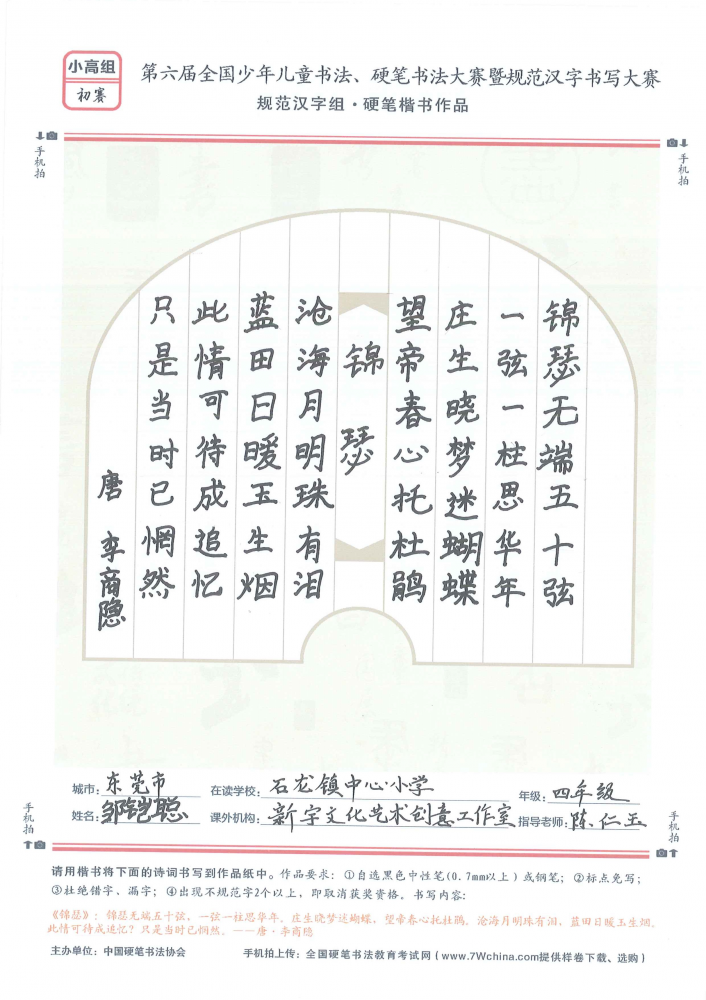 小高组
初赛
第六届全国少年儿童书法、硬笔书法大赛暨规范汉字书写大赛
规范汉字组·硬笔楷书作品
手机拍
手机拍
锦瑟无端五十弦
一弦一柱思华年
庄生晓梦迷蝴蝶
望帝春心托杜鹃
锦瑟
沧海月明珠有泪
蓝田日暖玉生烟
此情可待成追忆
只是当时已惘然
唐 李商隐
城市：东莞市 在读学校：石龙镇中心小学 年级：四年级
姓名：邹铠聪 课外机构：新宇文化艺术创意工作室 指导老师：陈仁玉
手机拍
手机拍
请用楷书将下面的诗词书写到作品纸中。作品要求：①自选黑色中性笔(0.7mm以上)或钢笔；②标点免写；
③杜绝错字、漏字；④出现不规范字2个以上，即取消获奖资格。书写内容：
《锦瑟》：锦瑟无端五十弦，一弦一柱思华年。庄生晓梦迷蝴蝶，望帝春心托杜鹃。沧海月明珠有泪，蓝田日暖玉生烟。
此情可待成追忆？只是当时已惘然。——唐·李商隐
主办单位：中国硬笔书法协会 手机拍上传：全国硬笔书法教育考试网（www.7Wchina.com提供样卷下载、选购）